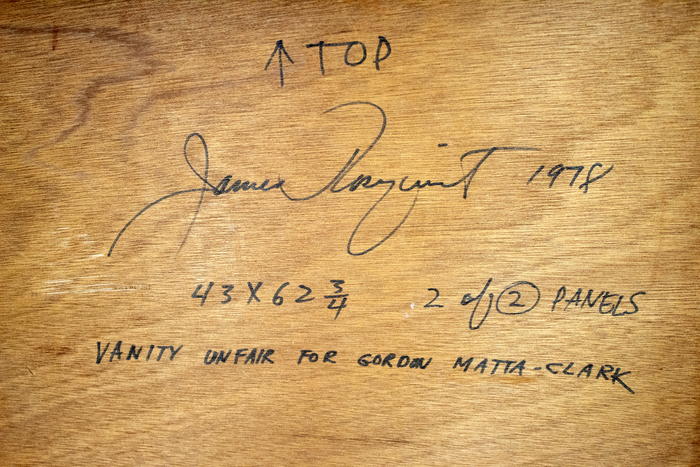 ↑ TOP
James Rosenquist 1978
43 X 62 3/4 2 of 2 PANELS
VANITY UNFAIR FOR GORDON MATTA-CLARK